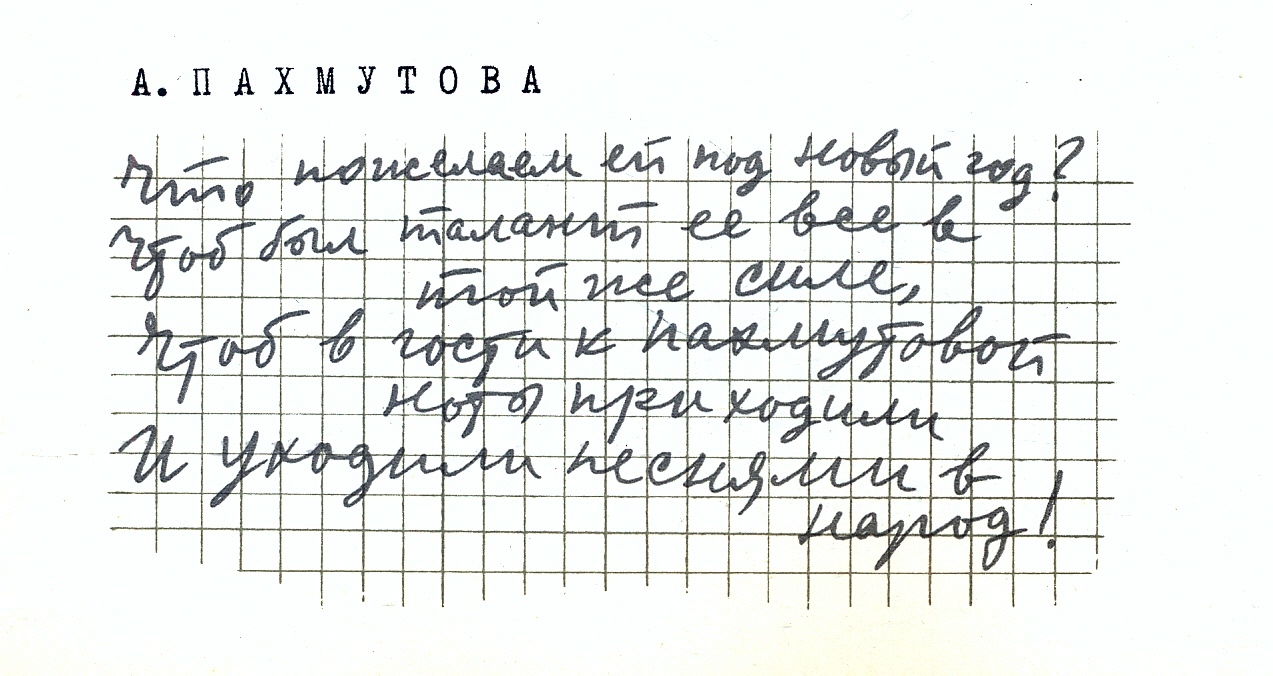 А. ПАХМУТОВА
Что пожелаем ей под новый год?
Чтоб был талант ее все в
той же силе,
Чтоб в гости к Пахмутовой
ноты приходили
И уходили песнями в
народ!